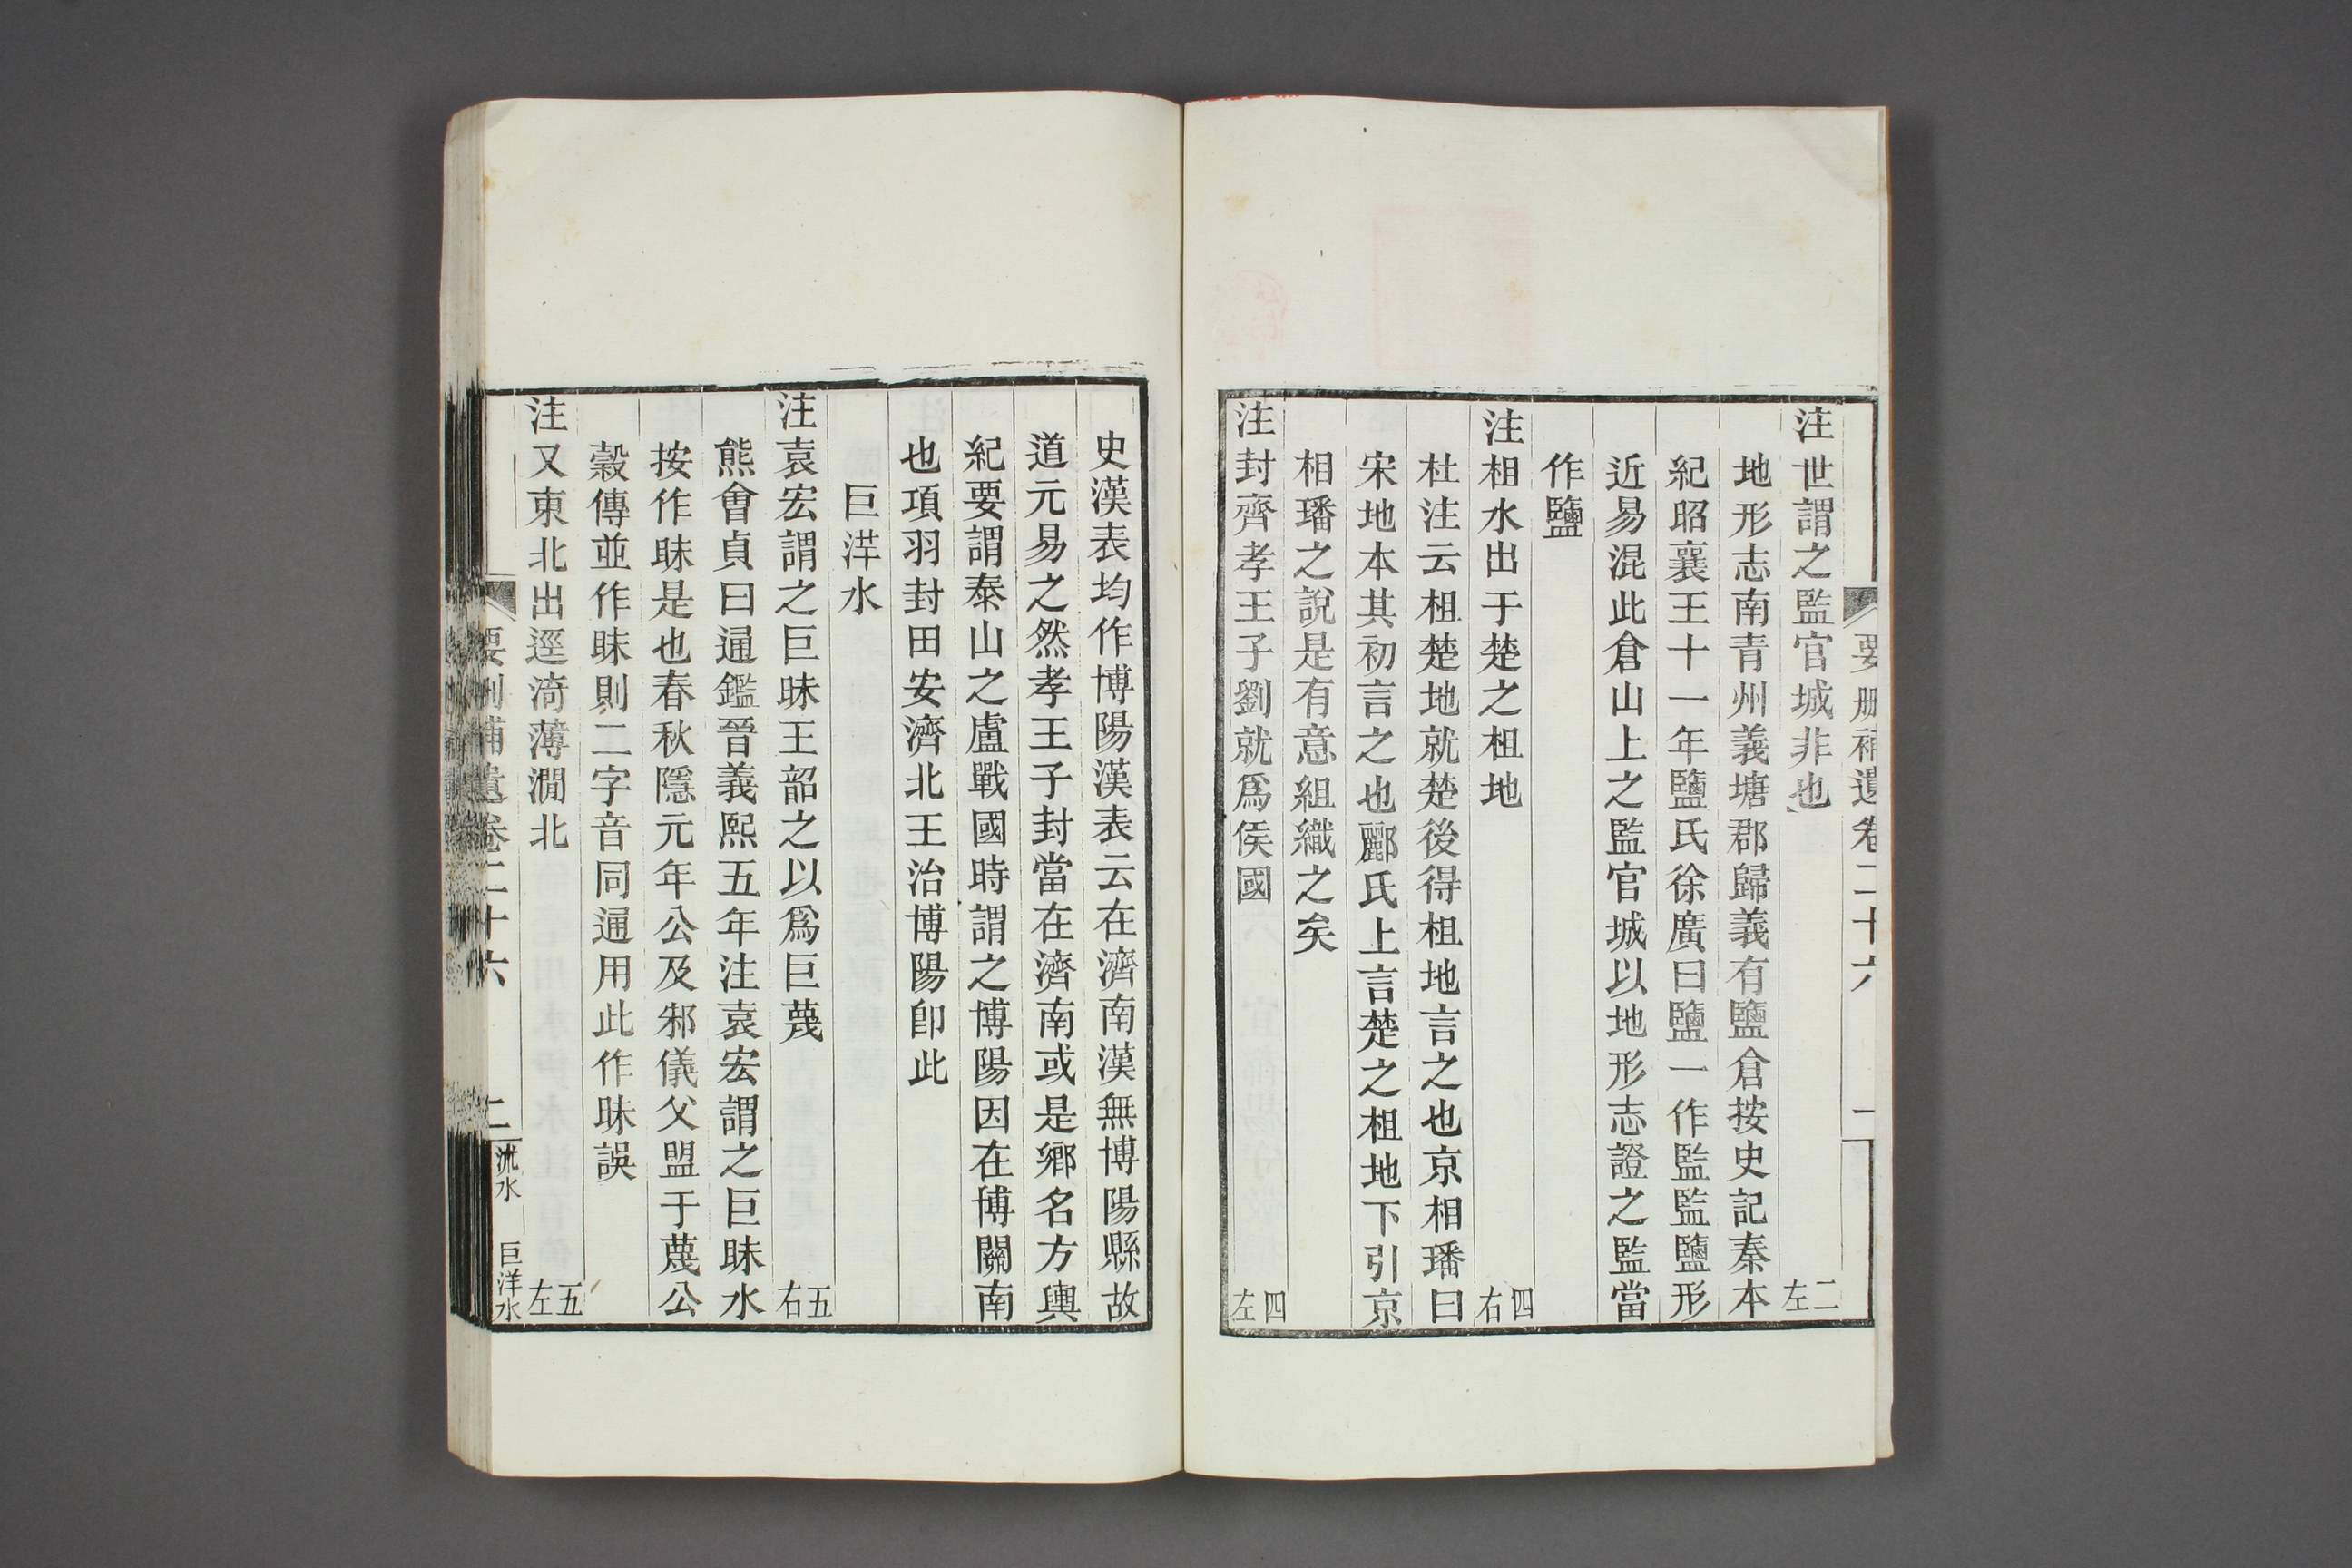 要删補遺卷二十六 一
注世謂之監官城非也 二左
地形志南青州義塘郡歸義有鹽倉按史記秦本
紀昭襄王十一年鹽氏徐廣曰鹽一作監監鹽形
近易混此倉山上之監官城以地形志證之監當
作鹽
注柤水出于楚之柤地 四右
杜注云柤楚地就楚後得柤地言之也京相璠曰
宋地本其初言之也酈氏上言楚之柤地下引京
相璠之說是有意組織之矣
注封齊孝王子劉就爲侯國 四左
史漢表均作博陽漢表云在濟南漢無博陽縣故
道元易之然孝王子封當在濟南或是鄉名方輿
紀要謂泰山之盧戰國時謂之博陽因在博關南
也項羽封田安濟北王治博陽卽此
巨洋水
注袁宏謂之巨昧王韶之以爲巨蔑 五右
熊會貞曰通鑑晉義熙五年注袁宏謂之巨眜水
按作眜是也春秋隱元年公及邾儀父盟于蔑公
穀傳並作眜則二字音同通用此作昧誤
注又東北出逕漪薄澗北 五左
要刪補遺卷二十六 二 沭水 巨洋水